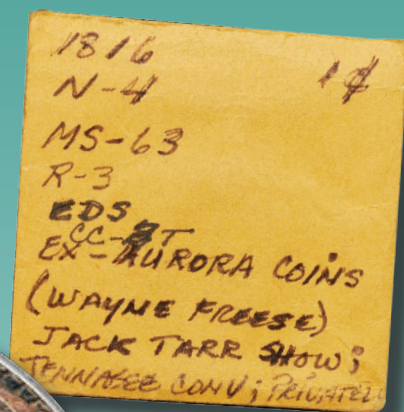 1816 1¢
N-4
MS-63
R-3
EDS
CC-
EX-AURORA COINS
(WAYNE FREESE)
JACK TARR SHOW;
TENNASEE CONV; PRIVATELY